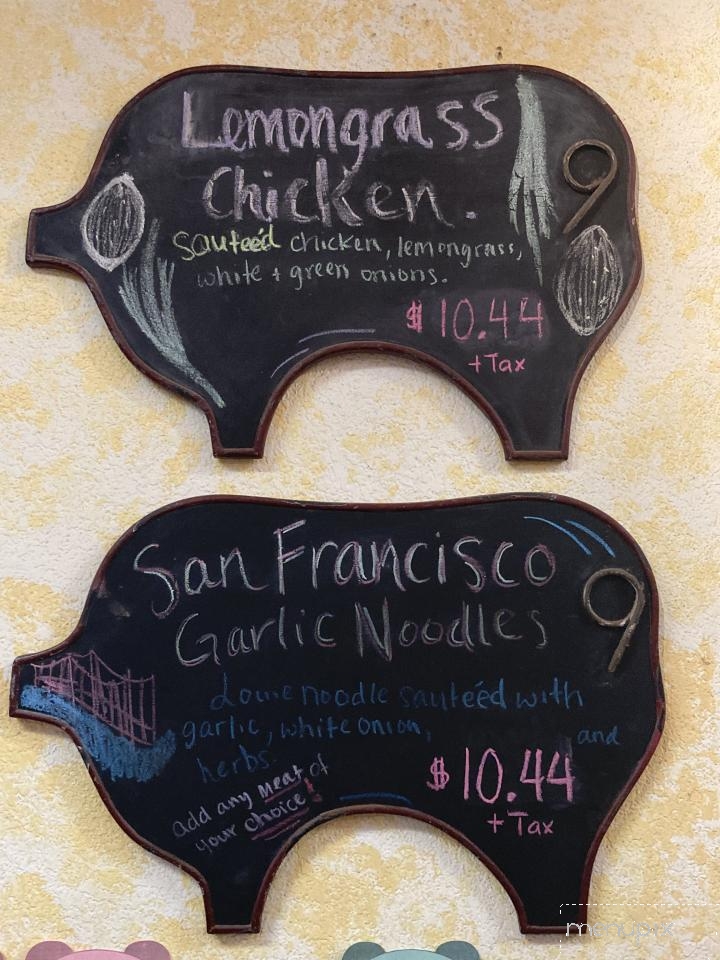 Lemongrass
Chicken.
Sauteéd chicken, lemongrass,
white + green onions.
$10.44
+Tax
San Francisco
Garlic Noodles
noodle sauteéd with
garlic, white onion, and
herbs.
$10.44
+Tax
add any meat of
your choice!